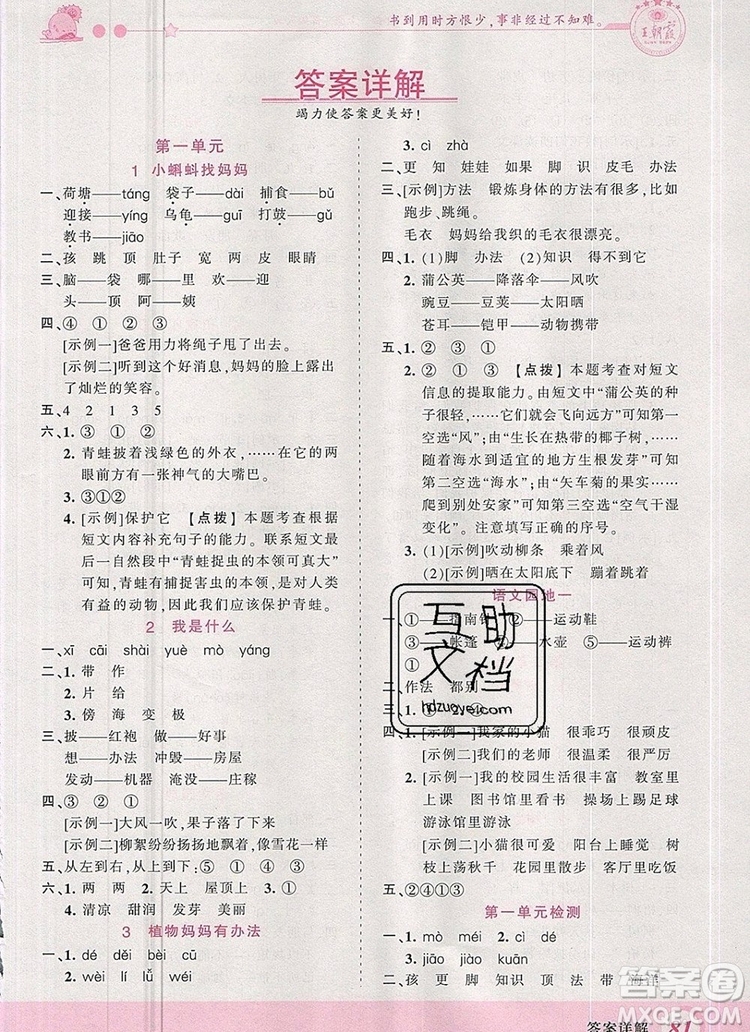 书到用时方恨少,事非经过不知难。
王朝霞
答案详解
竭力使答案更美好!
第一单元
1 小蝌蚪找妈妈
一、荷塘——táng 袋子——dài 捕食——bǔ
迎接——yíng 乌龟——guī 打鼓——gǔ
教书——jiāo
二、孩 跳 顶 肚子 宽 两 皮 眼睛
三、脑——袋 哪——里 欢——迎
头——顶 阿——姨
四、④ ① ②
[示例一]爸爸用力将绳子甩了出去。
[示例二]听到这个好消息,妈妈的脸上露出
了灿烂的笑容。
五、4 2 1 3 5
六、1. ③ ①
2. 青蛙披着浅绿色的外衣,……在它的两
眼前方有一张神气的大嘴巴。
3. ③①②
4. [示例]保护它 【点拨】本题考查根据
短文内容补充句子的能力。联系短文
的最后自然段中“青蛙捉虫的本领可真大”
可知,青蛙有捕捉害虫的本领,是人类
有益的动物,所以我们应该保护青蛙。
2 我是什么
一、xī cāi shài yuè mò gāng
二、1. 带 作
2. 片 给
3. 傍 海 变 极
三、披——红袍 做——好事
想——办法 冲毁——房屋
发动——机器 淹没——庄稼
四、③ ① ②
[示例一]大风一吹,果子落了下来。
[示例二]柳絮纷纷扬扬地飘着,像雪花一样
五、从左到右,从上到下:⑤ ① ④
六、1. 两 两 2. 天上 屋顶上 3. ①
4. 清凉 甜润 发芽 美丽
3 植物妈妈有办法
一、1. dé děi bèi cū
2. wèi lí lǚ wéi
3. cì zhà
二、更 知 娃娃 如果 脚 识 皮毛 办法
三、[示例]方法 锻炼身体的方法有很多,有
跑步、跳绳。
毛衣 妈妈给我织的毛衣很漂亮。
四、1. (1)脚 办法 (2)知识 得不到它
2. 蒲公英——降落伞——风吹
豌豆——豆荚——太阳晒
苍耳——铠甲——动物携带
五、1. ② ③ ①
2. ③ ① ② 【点拨】本题考查对短文
信息的提取能力。由短文“蒲公英的种
子很轻,……就会飞向远方”可知第一
空选“风”;由“生长在热带的椰子树,……
随着海水到适宜的地方生根发芽”可知
第二空选“海水”;由“矢车菊的果实……
爬到别处安家”可知第三空选“空气干湿
变化”。注意填写正确的序号。
3. (1)[示例]吹动柳条 乘着风
(2)[示例]晒在太阳底下 蹦着跳着
语文园地一
一、①——指南针 ②——运动鞋
③——帐篷 ④——水壶 ⑤——运动裤
①
二、作法 都别
三、1. ① 2. ④
四、1. [示例一]我家的小猫 很乖巧 很顽皮
[示例二]我们的老师 很美丽 很严厉
2. [示例一]我的校园生活很丰富 教室里
上课 图书室里看书 操场上踢足球
游泳馆里游泳
[示例二]小猫很可爱 阳台上晒太阳
树上荡秋千 花园里散步 客厅里吃饭
五、②④①③
第一单元检测
一、1. mò méi 2. cì dé
3. jiāo jiào xuān kuān
二、孩 更 脚 知识 顶 法 带 海洋
互助文档
hdzuoye.com
答案圈
MXQE.COM
答案详解